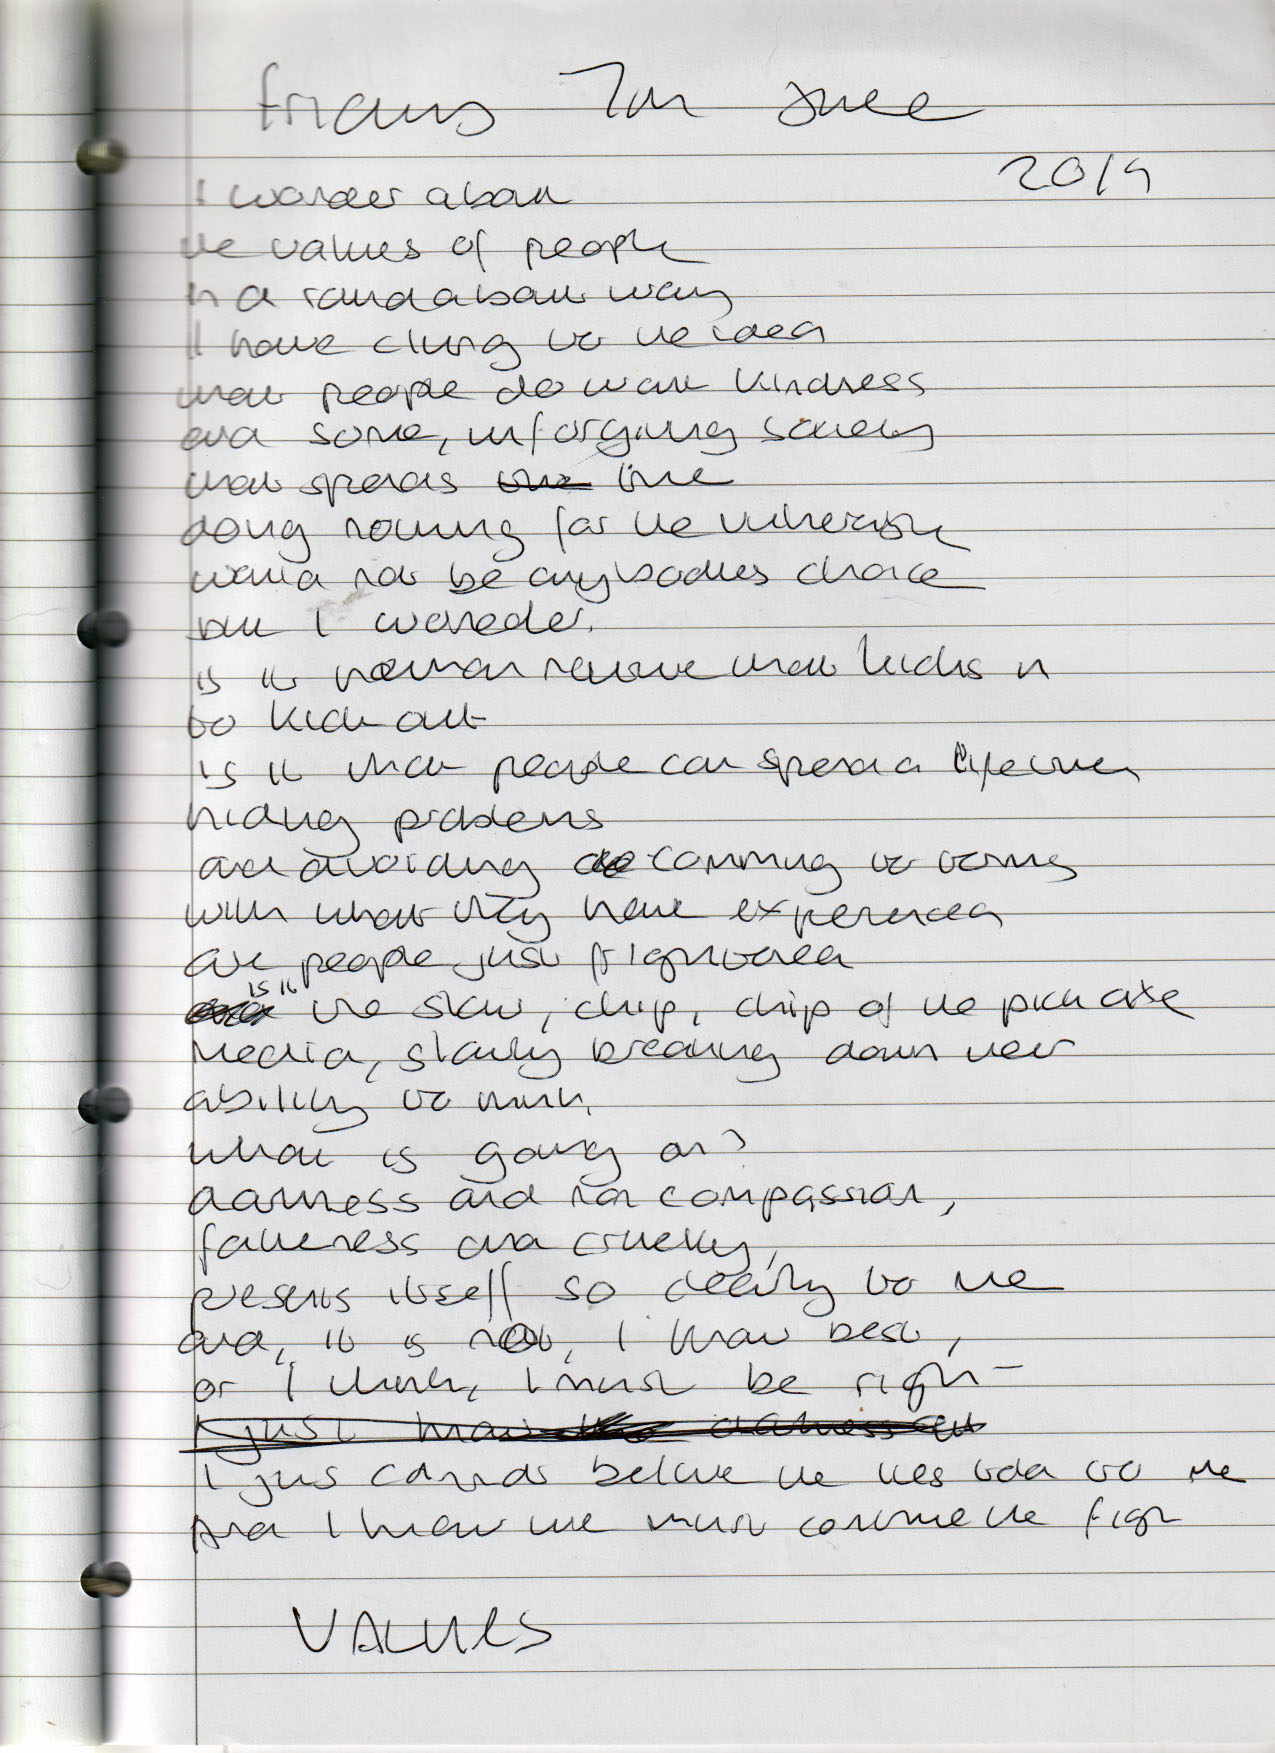 Friday 7th June
2019
I wonder about
the values of people
in a roundabout way
I have clung to the idea
that people do want kindness
and some, unforgiving society
that spends time
doing nothing for the vulnerable
would not be anybodies choice
but I wonder.
is it human nature that kicks in
to kick out
is it that people can spend a lifetime
hiding problems
and avoiding comming to terms
with what they have experienced
are people just frightened
is it the slow, chip, chip of the pick axe
media, slowly breaking down their
ability to think
what is going on?
darkness and not compassion,
fakeness and cruelty,
presents itself so clearly to me
and, it is not, I know best,
or I think, I must be right
I just know the darkness
I just cannot believe the lies told to me
And I know we must continue the fight
VALUES